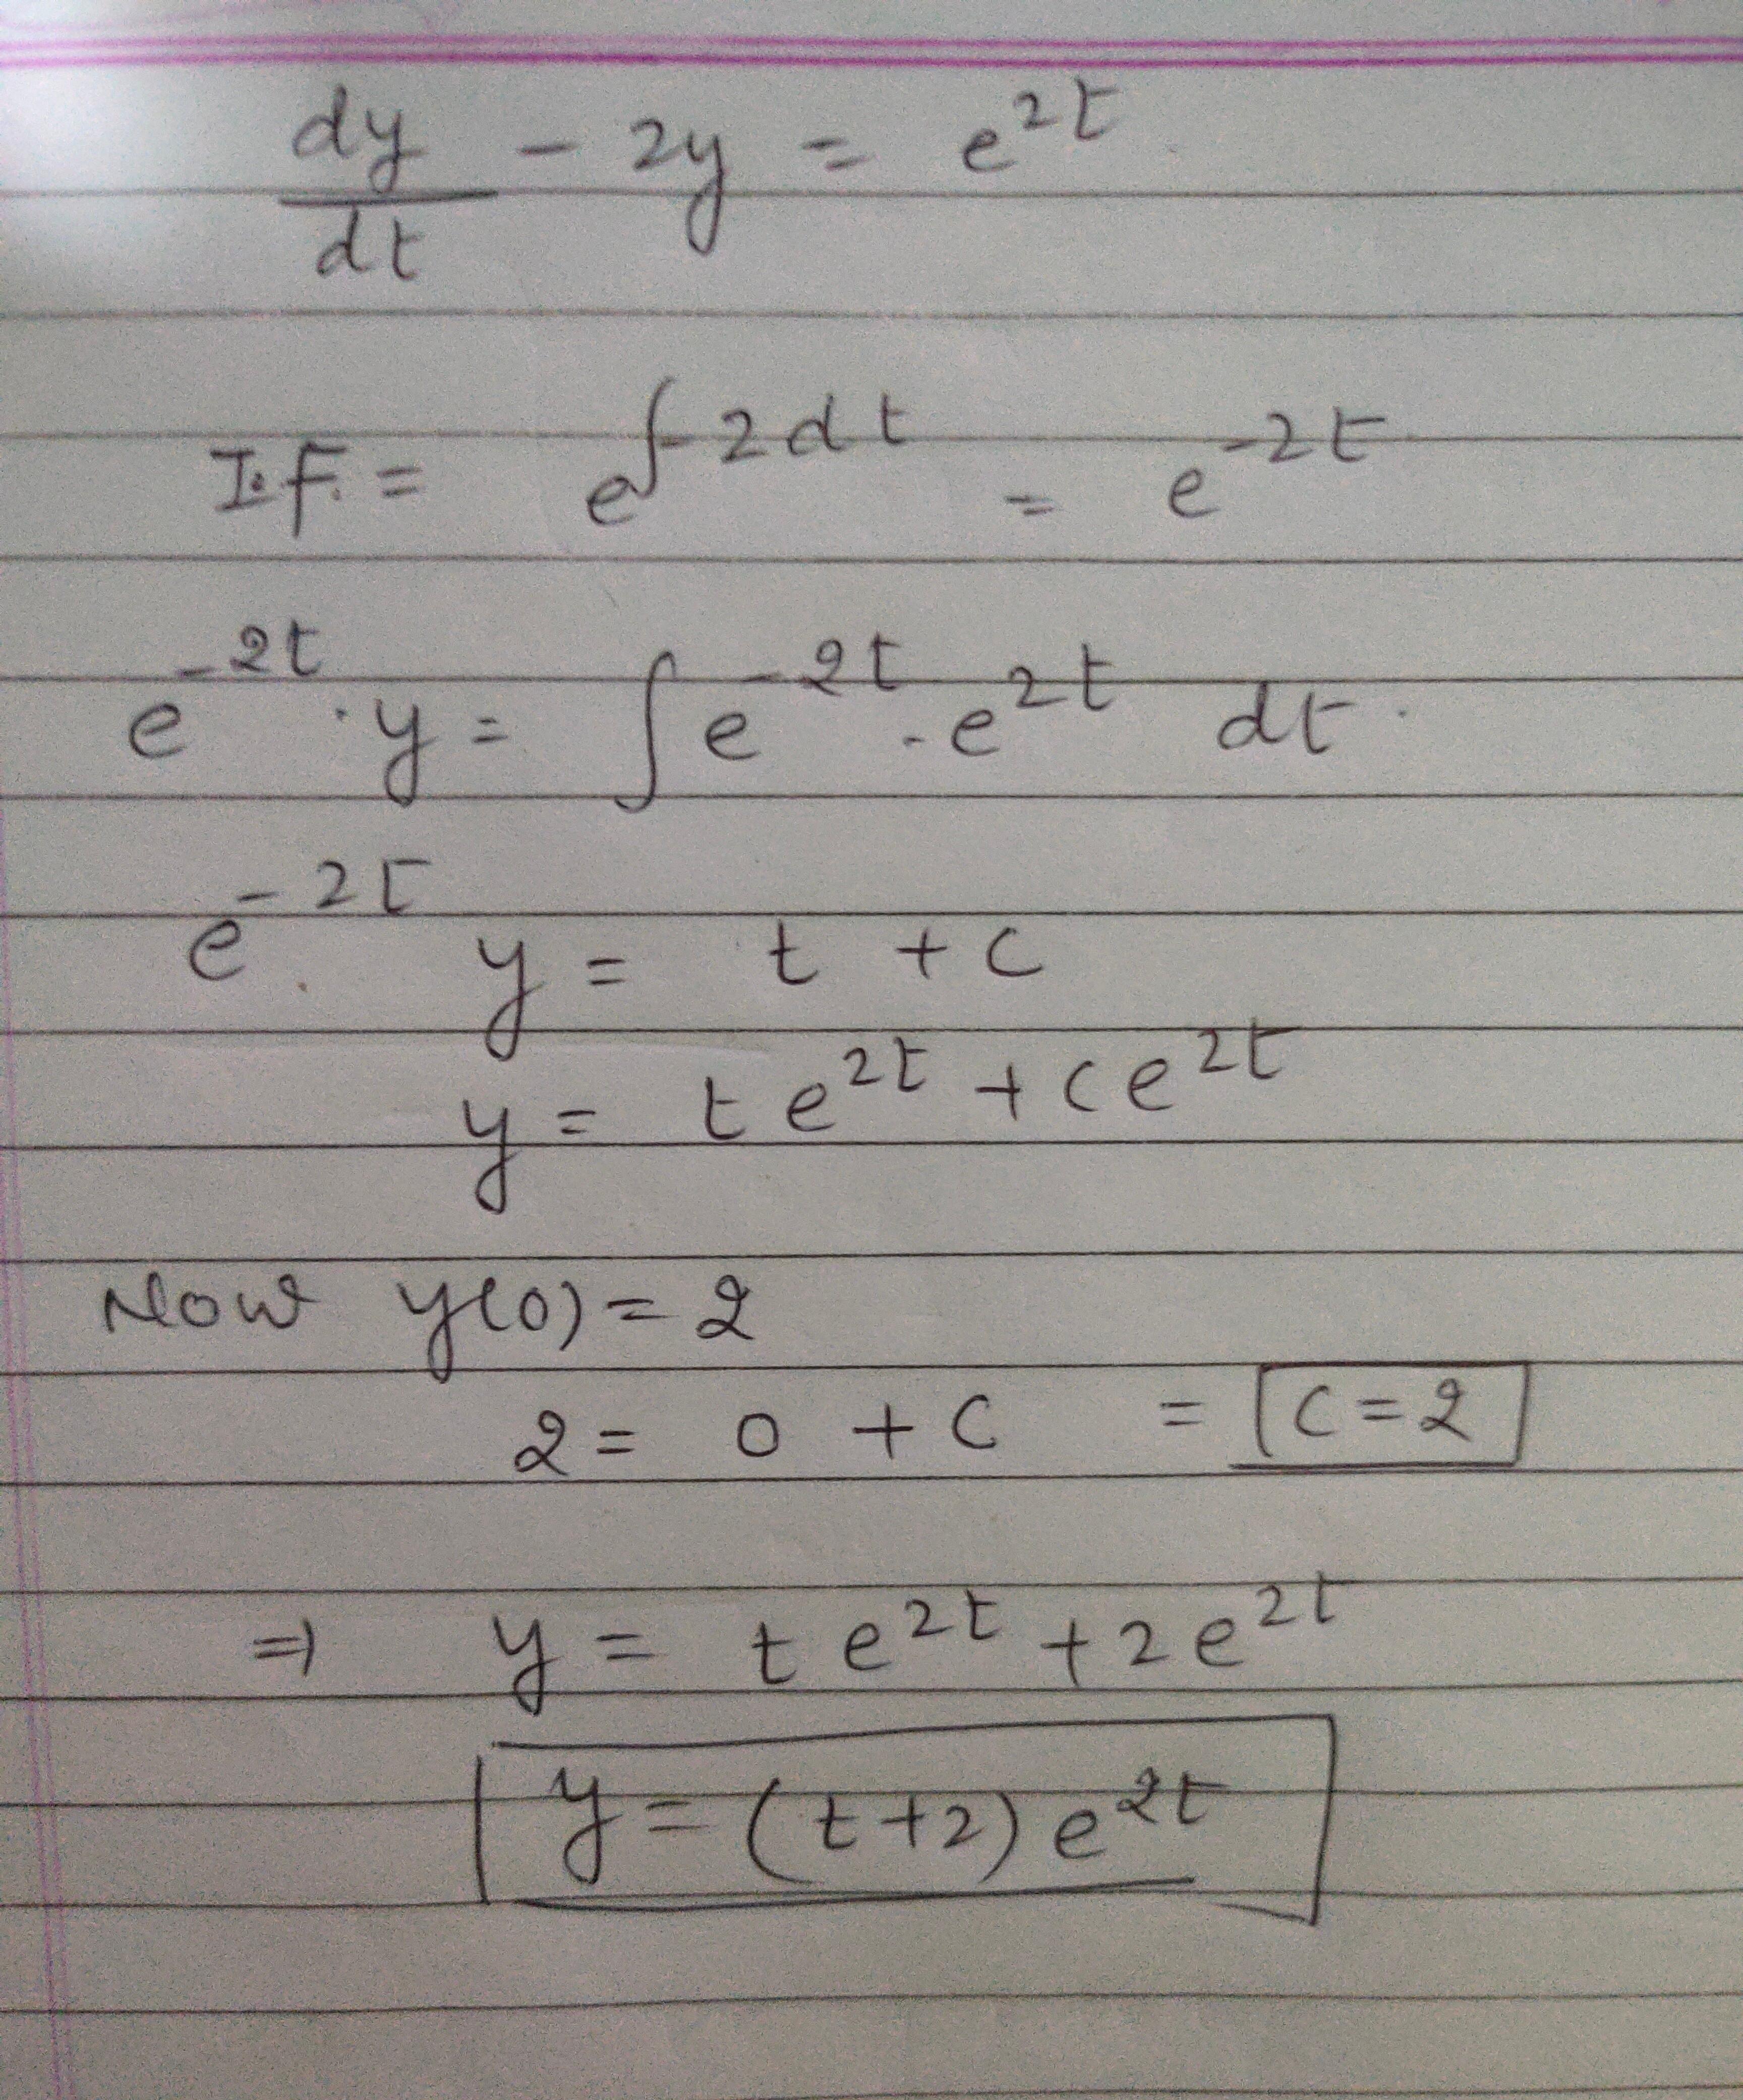 dy/dt - 2y = e^{2t}
I.F. = e^{∫-2dt} = e^{-2t}
e^{-2t} · y = ∫ e^{-2t} . e^{2t} dt .
e^{-2t} . y = t + c
y = t e^{2t} + c e^{2t}
Now y(0) = 2
2 = 0 + C = C = 2
⇒ y = t e^{2t} + 2 e^{2t}
y = (t+2) e^{2t}